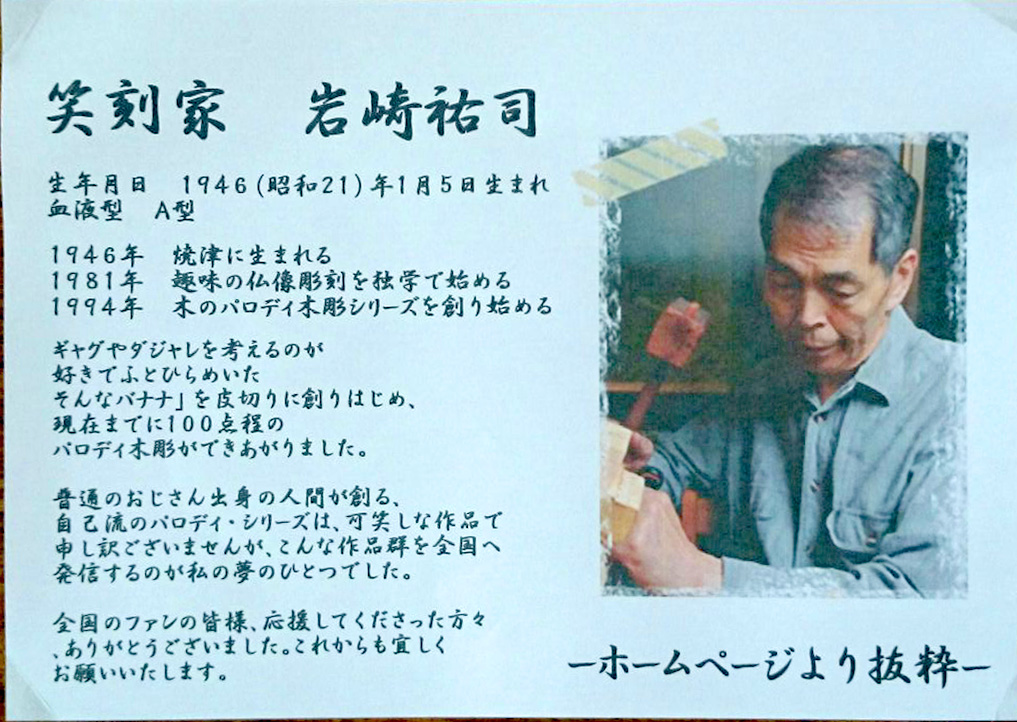 笑刻家　岩崎祐司
生年月日　1946(昭和21)年1月5日生まれ
血液型　A型
1946年　焼津に生まれる
1981年　趣味の仏像彫刻を独学で始める
1994年　木のパロディ木彫シリーズを創り始める
ギャグやダジャレを考えるのが
好きでふとひらめいた
そんなバナナ」を皮切りに創りはじめ、
現在までに100点程の
パロディ木彫ができあがりました。
普通のおじさん出身の人間が創る、
自己流のパロディ・シリーズは、可笑しな作品で
申し訳ございませんが、こんな作品群を全国へ
発信するのが私の夢のひとつでした。
全国のファンの皆様、応援してくださった方々
、ありがとうございました。これからも宜しく
お願いいたします。
ーホームページより抜粋ー